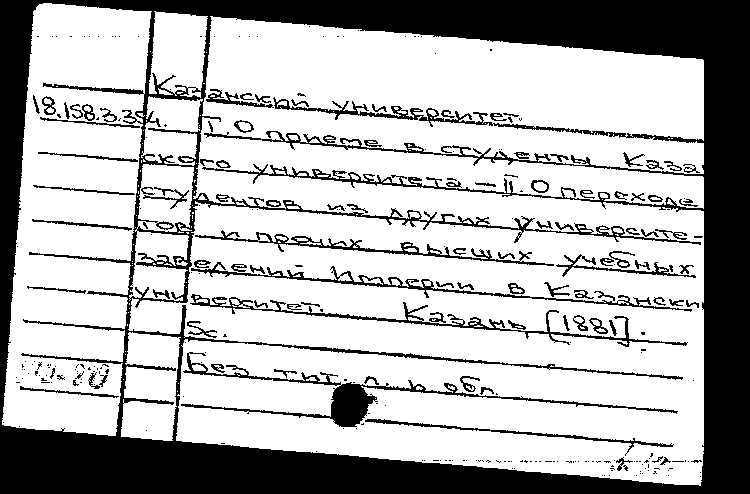 Казанский университет.
18.158.3.354.
I. О приеме в студенты Казан
ского университета. — II. О переходе
студентов из других университе-
тов и прочих высших учебных
заведений Империи в Казанский
университет. Казань, [1881].
5с.
Без тит. л. и обл.